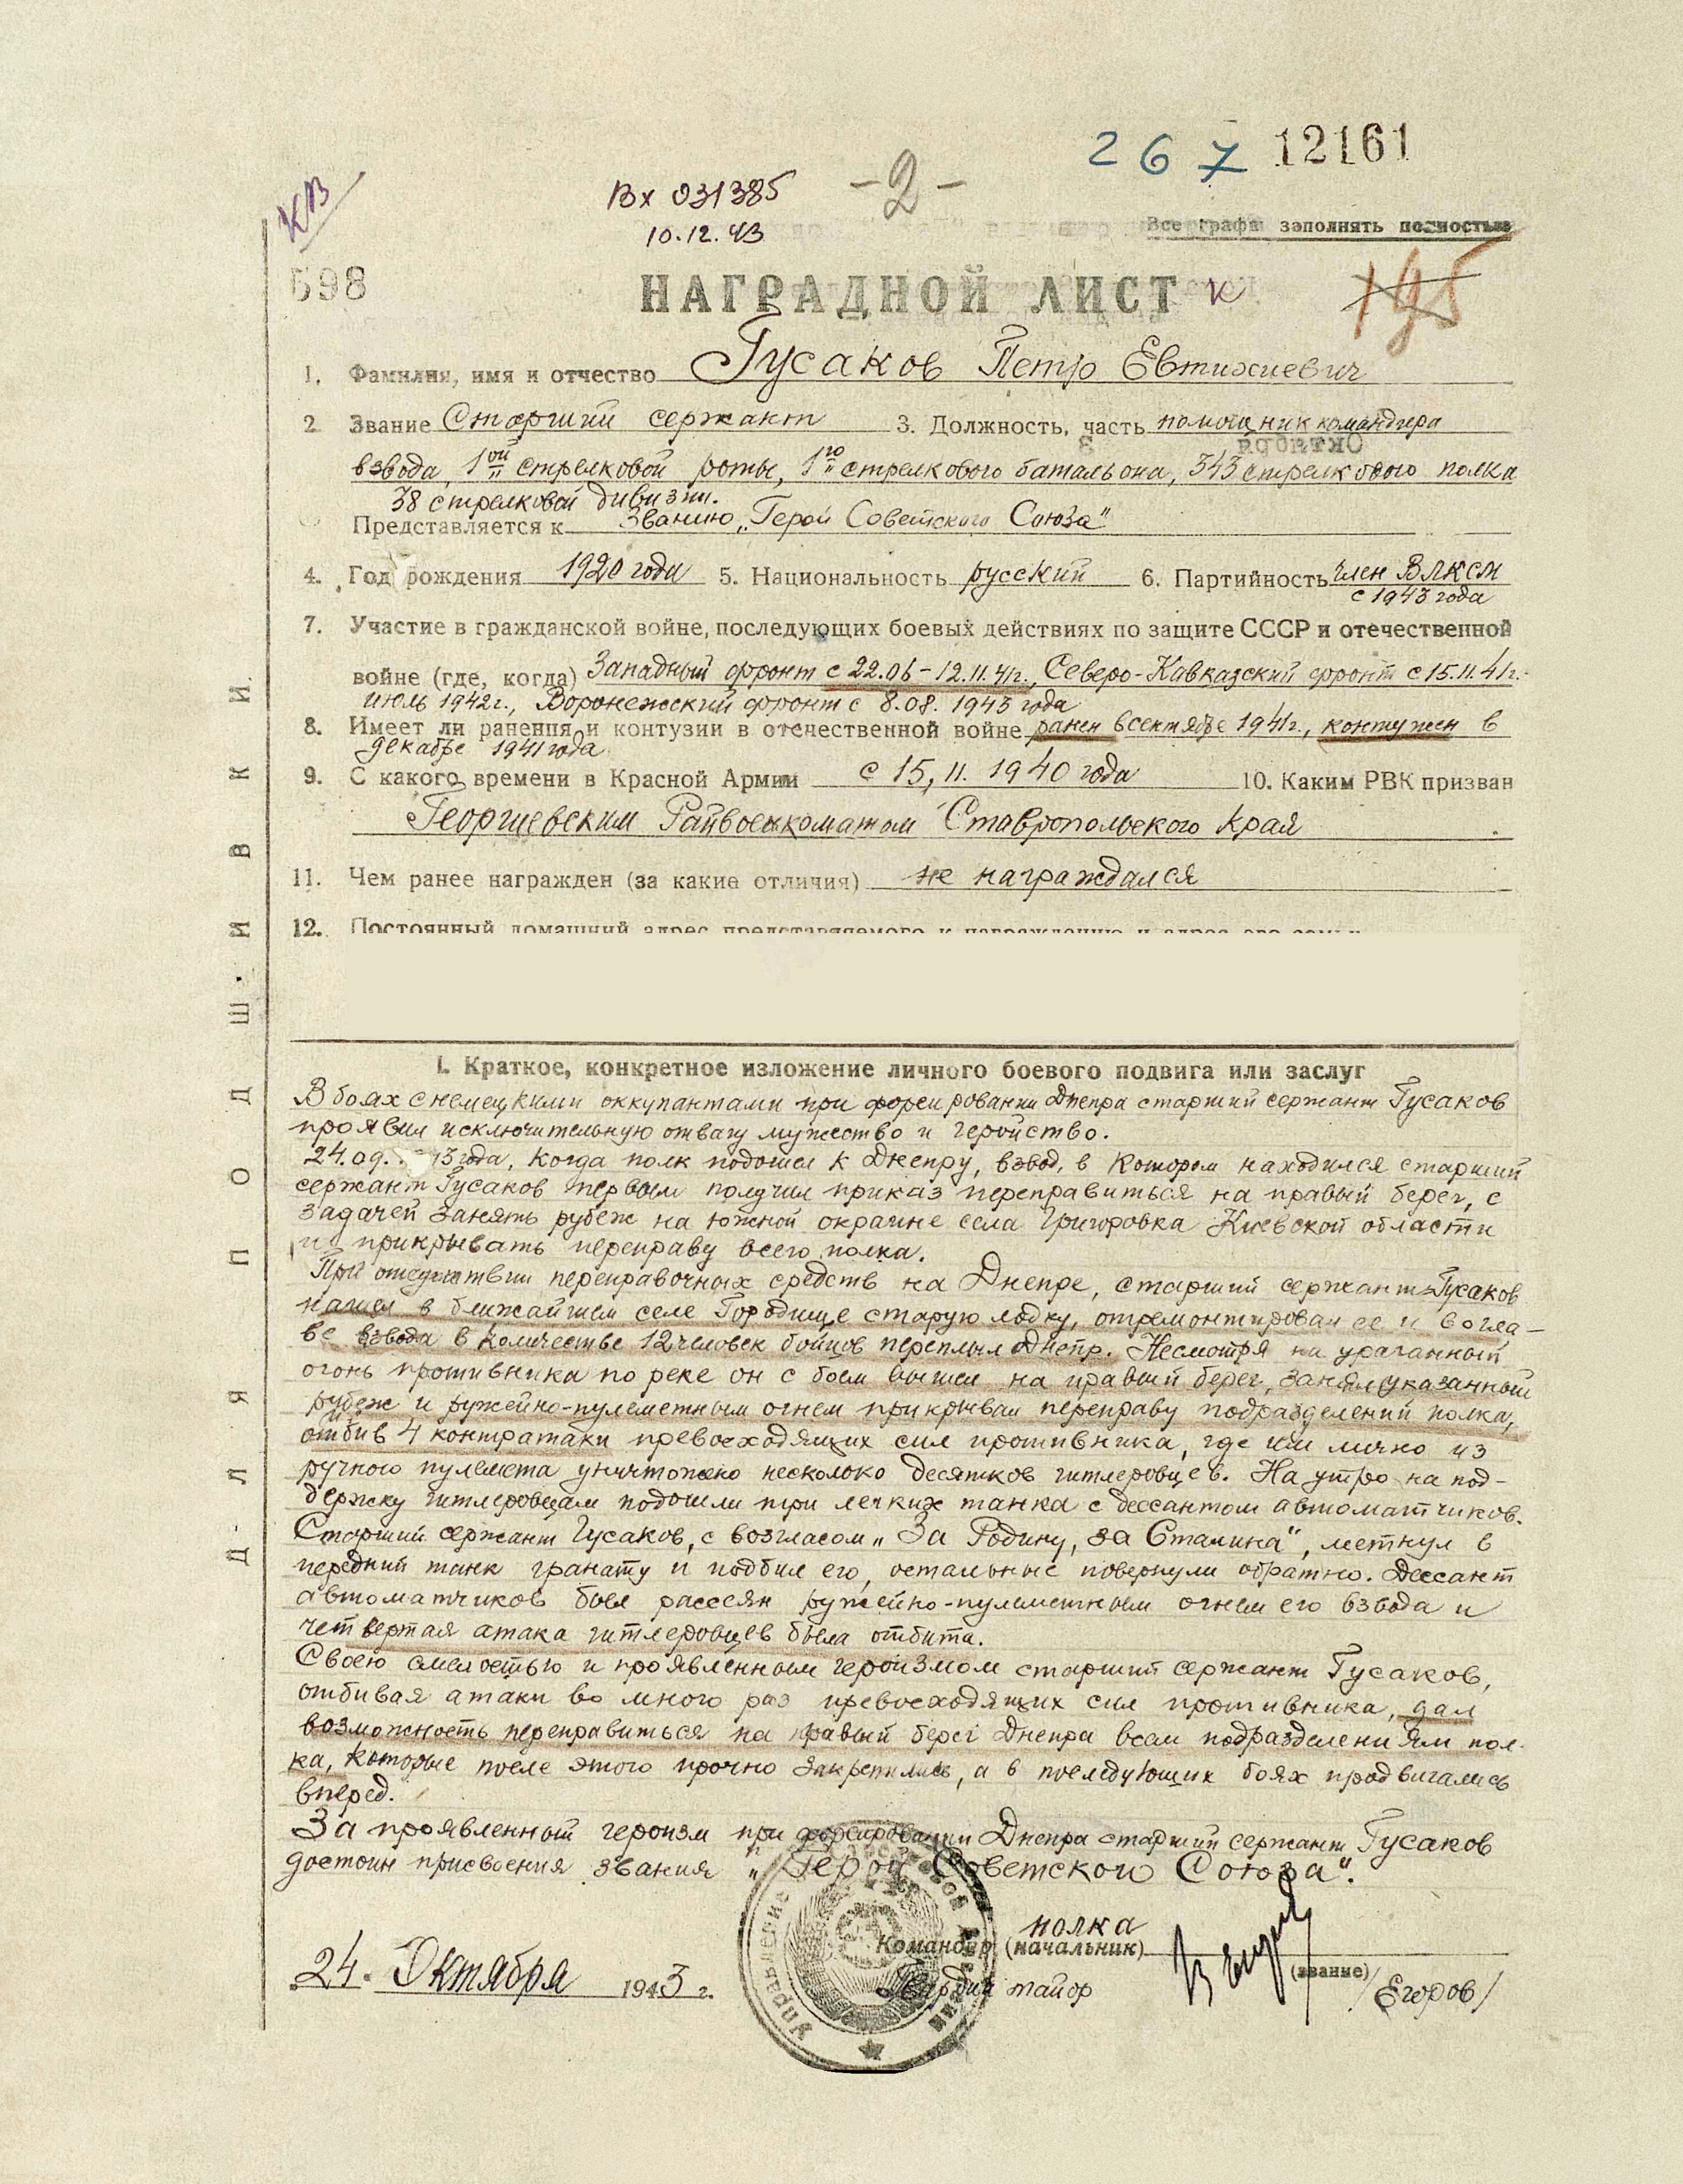 267 12161
КВ
Вх 031385
-2-
10.12.43
Все графы заполнять полностью
598
НАГРАДНОЙ ЛИСТ к
195
1. Фамилия, имя и отчество Гусаков Петр Евтихиевич
2 Звание Старший сержант 3. Должность, часть помощник командира
взвода, 1ой стрелковой роты, 1го стрелкового батальона, 343 стрелкового полка
38 стрелковой дивизии.
Представляется к званию „Герой Советского Союза"
4. Год рождения 1920 года 5. Национальность русский 6. Партийность член ВЛКСМ
с 1943 года
7. Участие в гражданской войне, последующих боевых действиях по защите СССР и отечественной
войне (где, когда) Западный фронт с 22.06-12.11.41г., Северо-Кавказский фронт с 15.11.41г.-
июль 1942г., Воронежский фронт с 8.08.1943 года
8. Имеет ли ранения и контузии в отечественной войне ранен в сентябре 1941г., контужен в
декабре 1941 года
9. С какого времени в Красной Армии с 15,11.1940 года 10. Каким РВК призван
Георгиевским Райвоенкоматом Ставропольского края
11. Чем ранее награжден (за какие отличия) не награждался
12. Постоянный домашний адрес представляемого к награждению и адрес его семьи
I. Краткое, конкретное изложение личного боевого подвига или заслуг
В боях с немецкими оккупантами при форсировании Днепра старший сержант Гусаков
проявил исключительную отвагу мужество и геройство.
24.09. 43 года, когда полк подошел к Днепру, взвод, в котором находился старший
сержант Гусаков первым получил приказ переправиться на правый берег, с
задачей занять рубеж на южной окраине села Григоровка Киевской области
и прикрывать переправу всего полка.
При отсутствии переправочных средств на Днепре, старший сержант Гусаков
нашел в ближайшем селе Городище старую лодку, отремонтировал ее и во гла-
ве взвода в количестве 12 человек бойцов переплыл Днепр. Несмотря на ураганный
огонь противника по реке он с боем вышел на правый берег, занял указанный
рубеж и ружейно-пулеметным огнем прикрывал переправу подразделений полка,
отбив 4 контратаки превосходящих сил противника, где им лично из
ручного пулемета уничтожено несколько десятков гитлеровцев. На утро на под-
держку гитлеровцам подошли три легких танка с дессантом автоматчиков.
Старший сержант Гусаков, с возгласом „За Родину, за Сталина", метнул в
передний танк гранату и подбил его, остальные повернули обратно. Дессант
автоматчиков был рассеян ружейно-пулеметным огнем его взвода и
четвертая атака гитлеровцев была отбита.
Своею смелостью и проявленным героизмом старший сержант Гусаков,
отбивая атаки во много раз превосходящих сил противника, дал
возможность переправиться на правый берег Днепра всем подразделениям пол-
ка, которые после этого прочно закрепились, а в последующих боях продвигались
вперед.
За проявленный героизм при форсировании Днепра старший сержант Гусаков
достоин присвоения звания „Герой Советского Союза".
полка
Командир (начальник)
(звание)
24. Октября 1943 г.
Гвардии майор
/Егоров/
Управление стрелковой дивизии
ДЛЯ ПОДШИВКИ.